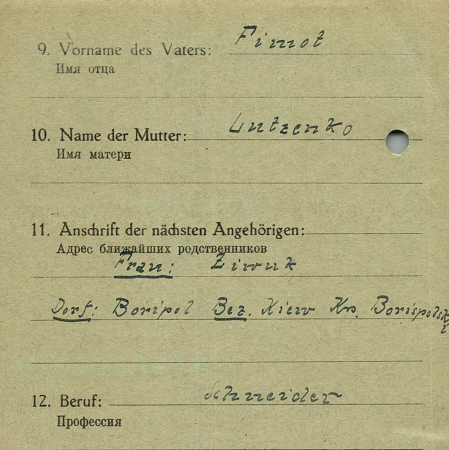 9. Vorname des Vaters: Fimot
Имя отца
10. Name der Mutter: Lutzenko
Имя матери
11. Anschrift der nächsten Angehörigen:
Адрес ближайших родственников
Frau:
Dorf: Boripol Bez. Kiew Kr. Boripolski
12. Beruf: Schneider
Профессия